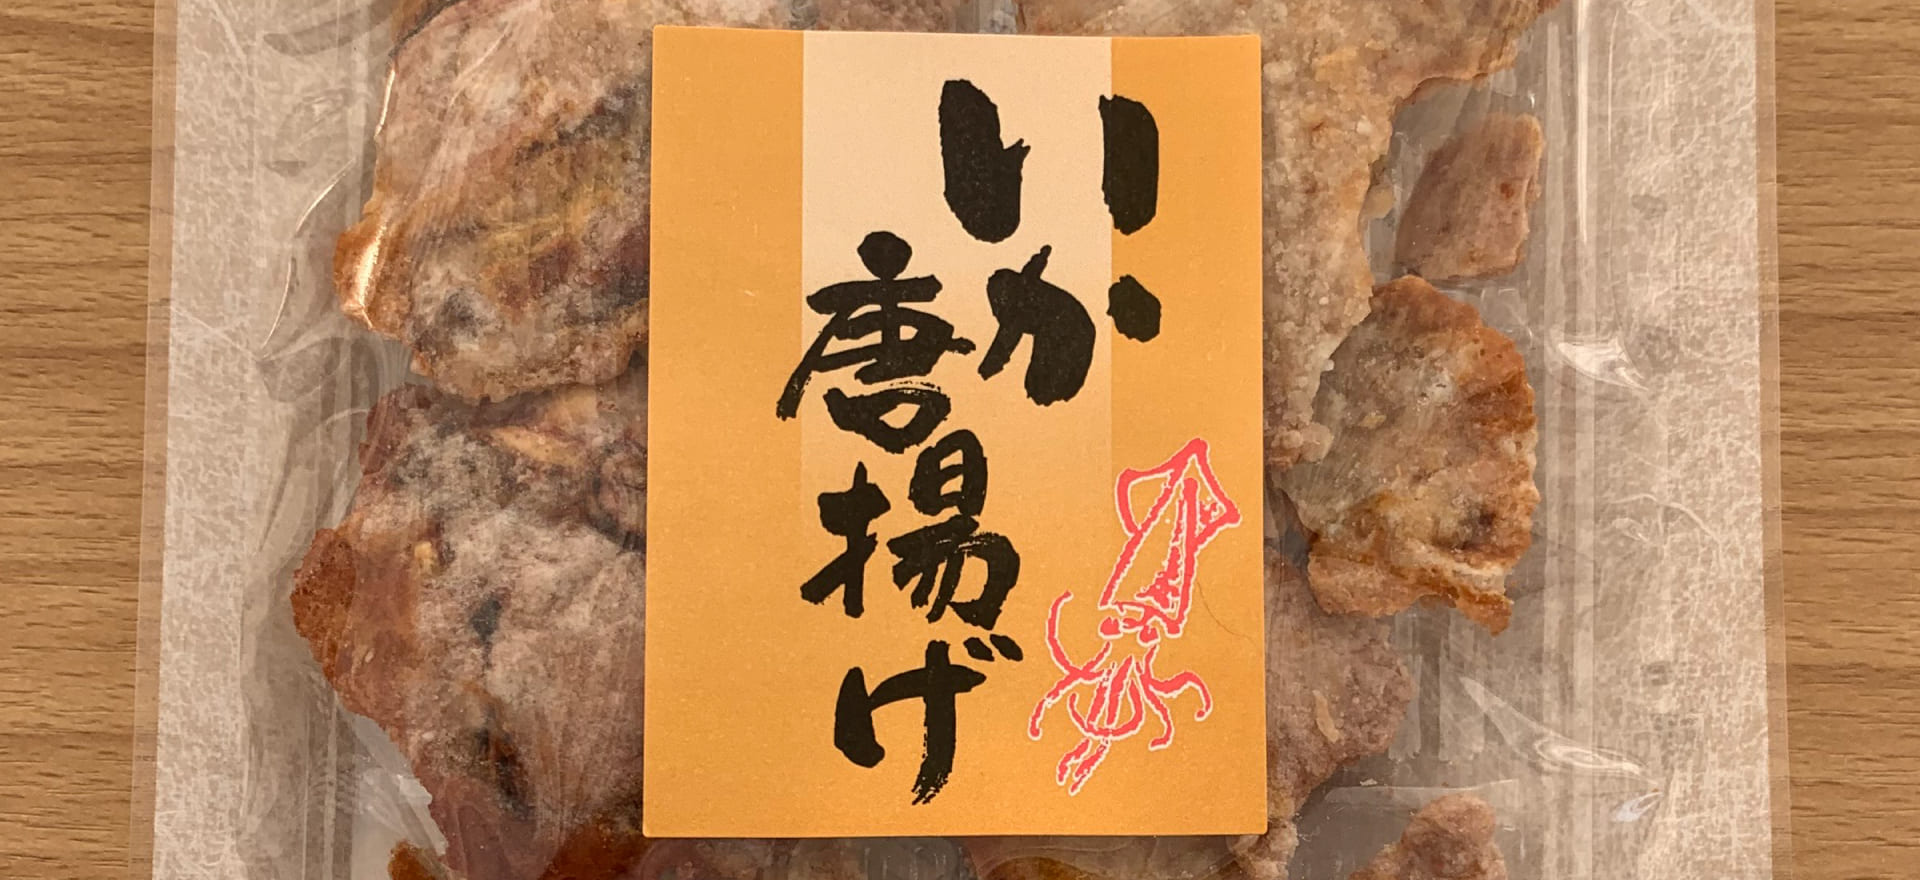 いか
唐揚げ